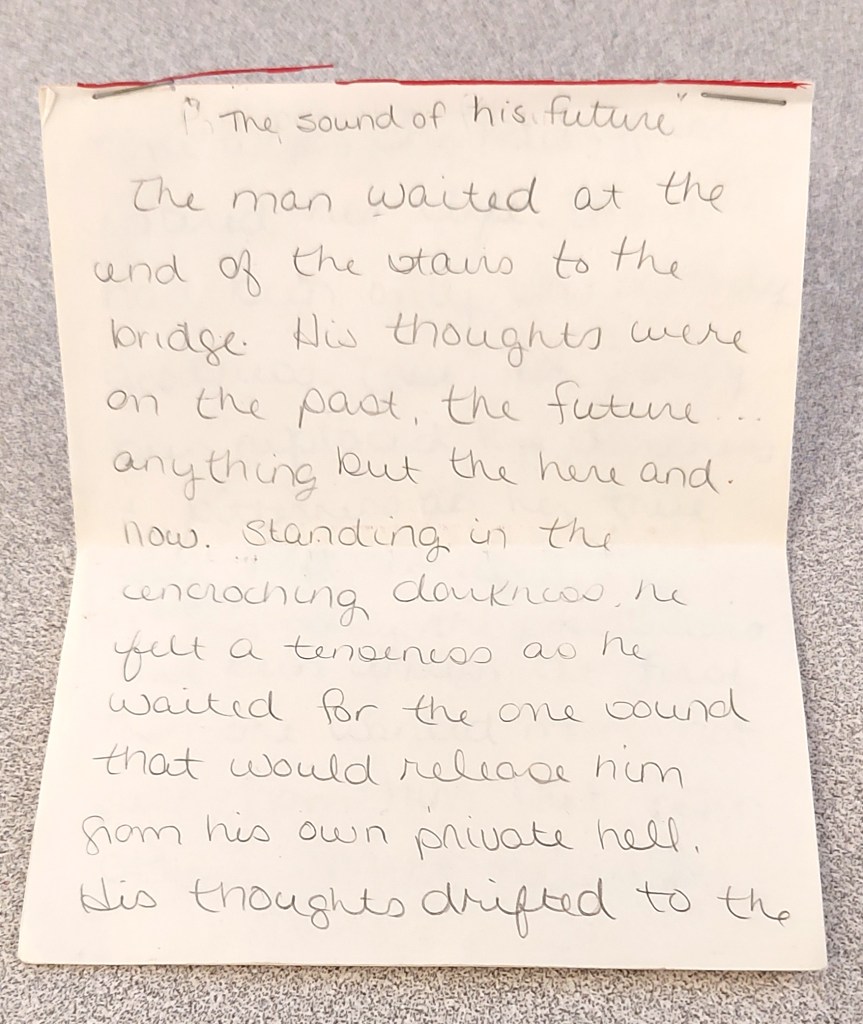 "The sound of his future"
The man waited at the
end of the stairs to the
bridge. His thoughts were
on the past, the future...
anything but the here and.
now. Standing in the
encroching darkness, he
felt a tenseness as he
waited for the one sound
that would release him
from his own private hell.
His thoughts drifted to the